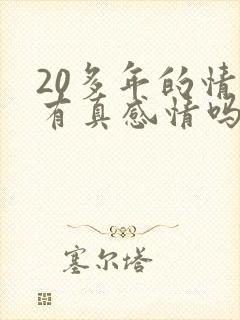 20多年的情
有真感情吗
塞尔塔